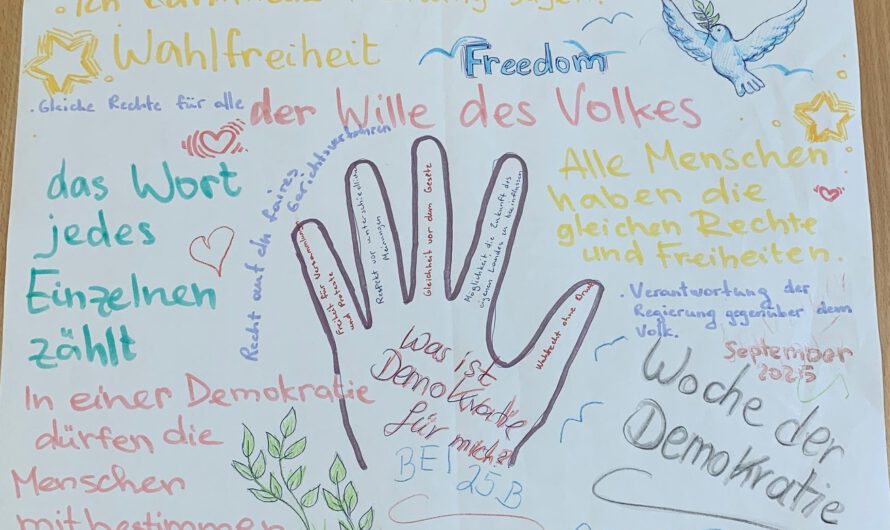 Wahlfreiheit
Freedom
. Gleiche Rechte für alle
der Wille des Volkes
das Wort
jedes
Einzelnen
zählt
Recht auf ein faires
Gerichtsverfahren
Freiheit für Versammlungen
und Proteste
Respekt vor unterschiedlichen
Meinungen
Gleichheit vor dem Gesetz
Möglichkeit die Zukunft des
eigenen Landes zu beeinflussen
Wahlrecht ohne
Alle Menschen
haben die
gleichen Rechte
und Freiheiten.
. Verantwortung der
Regierung gegenüber dem
Volk.
September
2025
Woche der
Demokratie
Was ist
Demokratie
für mich?
BEJ
25B
In einer Demokratie
dürfen die
Menschen
mitbestimmen